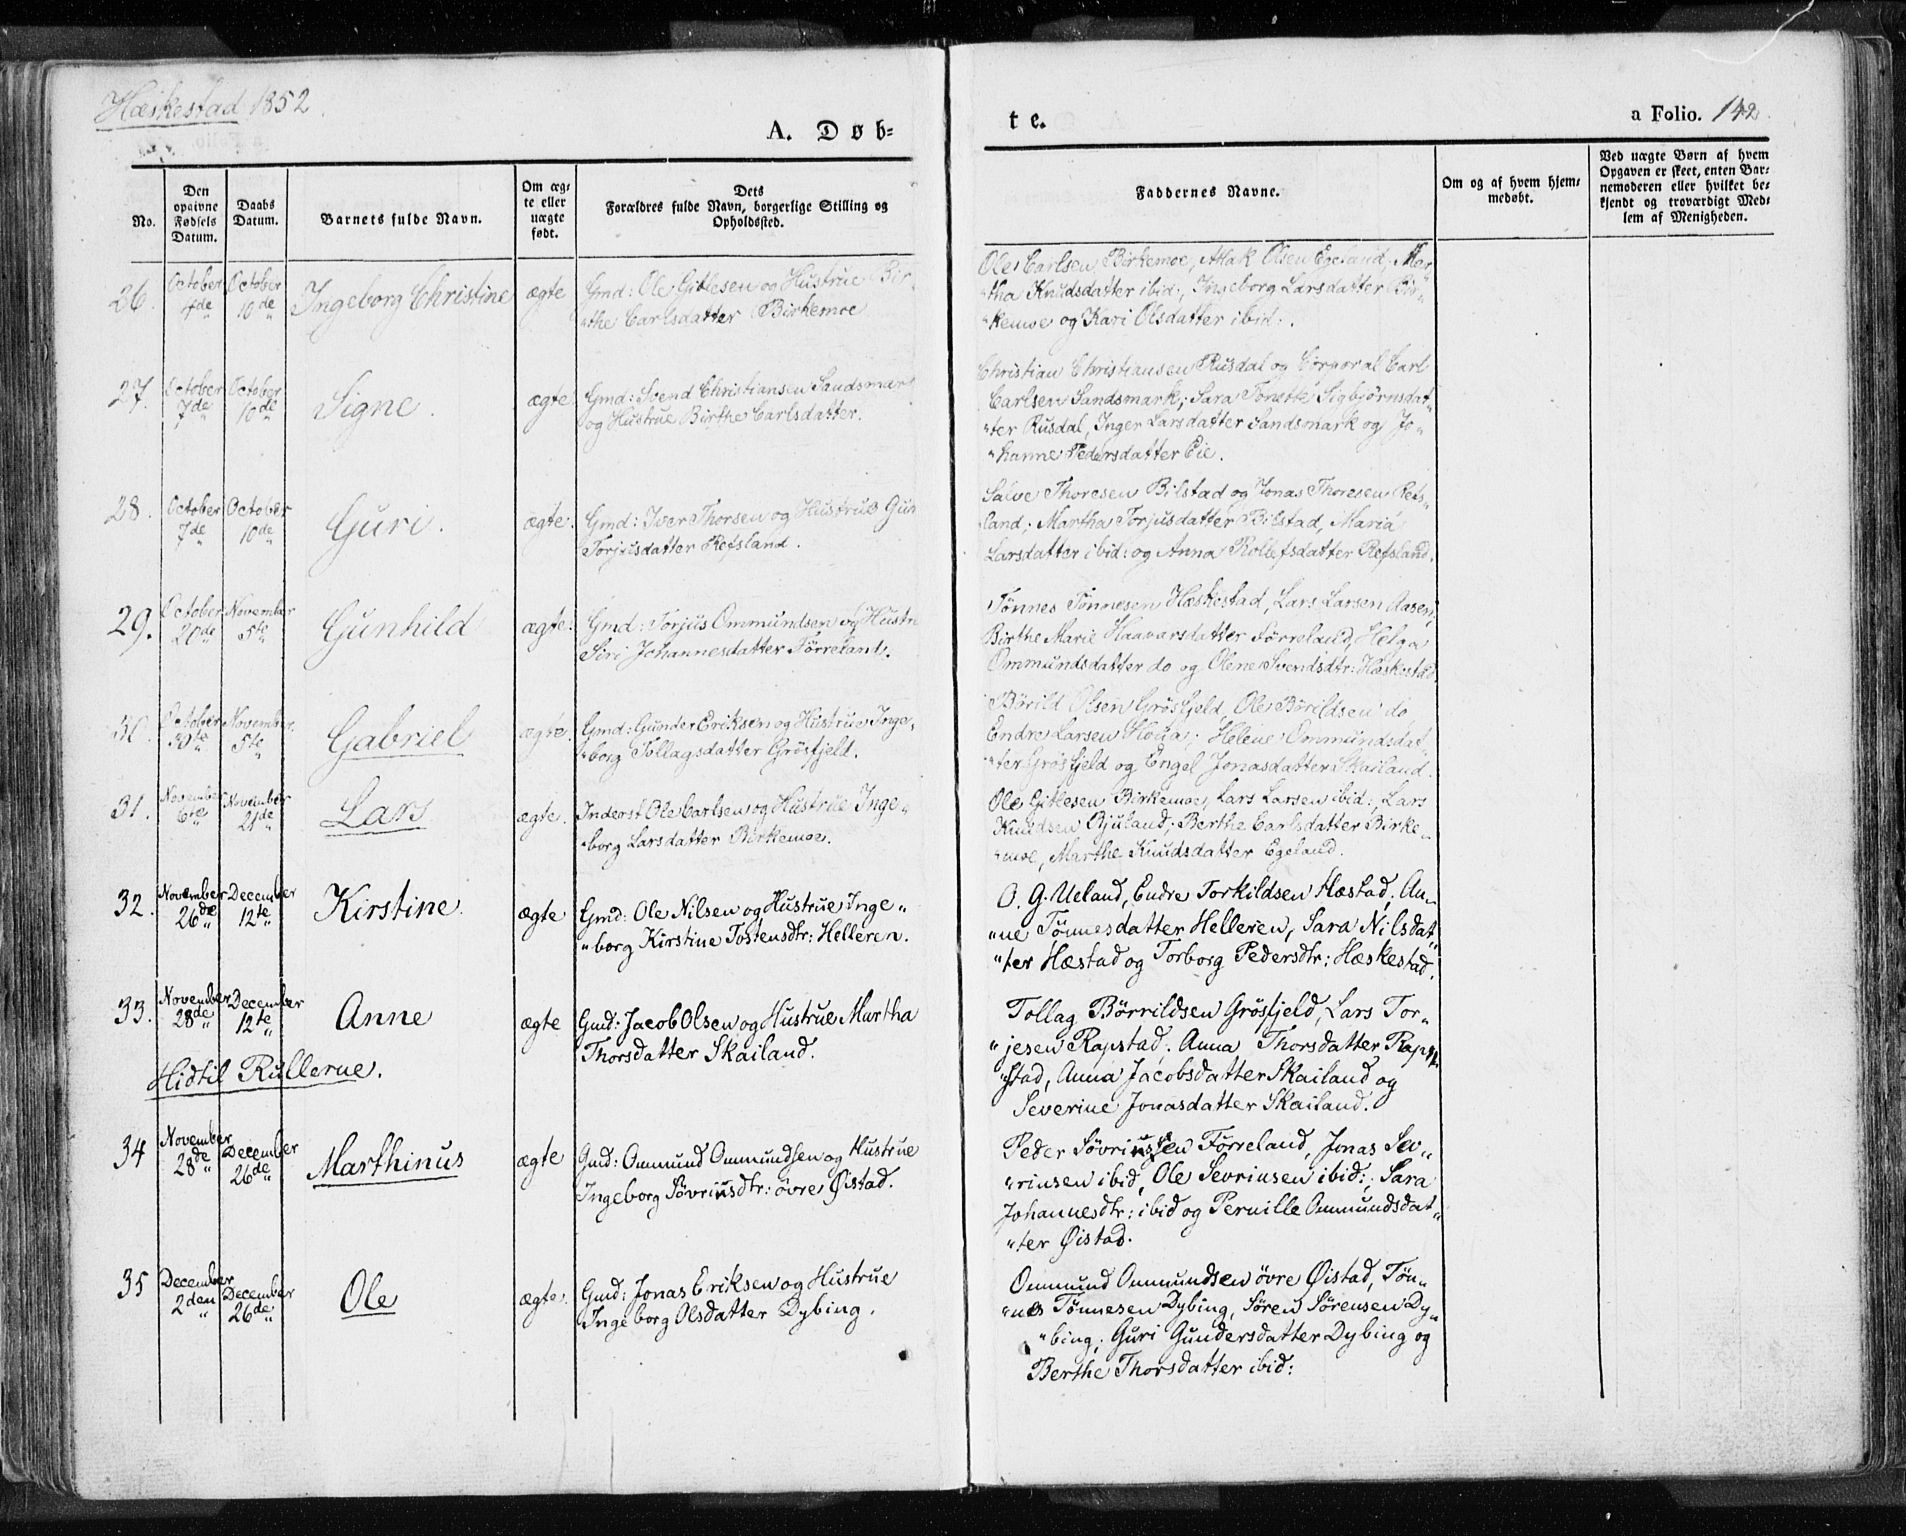 Hæskestad 1852.
A. Døb-
te.
a Folio. 142.
No.
Den opgivne Fødsels Datum.
Daabs Datum.
Barnets fulde Navn.
Om ægte eller uægte født.
Dets Forældres fulde Navn, borgerlige Stilling og Opholdssted.
Faddernes Navne.
Om og af hvem hjemmedøbt.
Ved uægte Børn af hvem Opgaven er skeet, enten Barnemoderen eller hvilket bekjendt og troværdigt Medlem af Menigheden.
26.
October 4de
October 10de
Ingeborg Christine
ægte
Gmd: Ole Gitlesen og Hustrue Bir-
"the Carlsdatter Birkemoe
Ole Carlsen Birkemoe, Atlak Olsen Egeland; Mar-
"tha Knudsdatter ibid:, Ingeborg Larsdatter Bir-
"kemoe og Kari Olsdatter ibid:.
27.
October 7de
October 10de
Signe.
ægte
Gmd: Svend Christiansen Sandsmark
og Hustrue Birthe Carlsdatter.
Christian Christiansen Rusdal og Corporal Carl
Carlsen Sandsmark; Sara Tonette Sigbjörnsdat-
"ter Rusdal, Inger Larsdatter Sandsmark og Jo-
"hanne Pedersdatter Eie.
28.
October 7de
October 10de
Guri.
ægte.
Gmd: Iver Thorsen og Hustrue Guri
Torjusdatter Refsland.
Salve Thoresen Bilstad og Jonas Thoresen Refs-
land; Martha Torjusdatter Bilstad, Maria
Larsdatter ibid: og Anna Rollefsdatter Refsland.
29.
October 20de
November 5te
Gunhild
ægte.
Gmd: Torjus Ommundsen og Hustru
Siri Johannesdatter Förreland.
Tönnes Tönnesen Hæskestad, Lars Larsen Aasen;
Birthe Marie Haavarsdatter Förreland, Helga
Ommundsdatter do og Olene Svendsdtr: Hæskestad.
30.
October 30te
November 5te
Gabriel
ægte.
Gmd: Gunder Eriksen og Hustrue Inge-
"borg Tollagsdatter Grösfjeld.
Börild Olsen Grösfjeld, Ole Börildsen do,
Endre Larsen Houa; Helene Ommundsdat-
"ter Grösfjeld og Engel Jonasdatter Skailand.
31.
November 6te
November 21de
Lars
ægte.
Inderst Ole Carlsen og Hustrue Inge-
"borg Larsdatter Birkemoe.
Ole Gitlesen Birkemoe, Lars Larsen ibid:, Lars
Knudsen Bjuland; Berthe Carlsdatter Birke-
"moe, Marthe Knudsdatter Egeland.
32.
November 26de
December 12te
Kirstine.
ægte
Gmd: Ole Nilsen og Hustrue Inge-
"borg Kirstine Tostensdtr: Helleren.
O. G. Ueland, Endre Torkildsen Hæstad; An-
"ne Tönnesdatter Helleren, Sara Nilsdat-
"ter Hæstad og Torborg Pedersdtr: Hæskestad.
33.
November 28de
December 12te
Anne
ægte
Gmd: Jacob Olsen og Hustrue Martha
Thorsdatter Skailand.
Tollag Börrildsen Grösfjeld, Lars Tor-
"jesen Rapstad; Anna Thorsdatter Rap-
"stad, Anna Jacobsdatter Skailand og
Severine Jonasdatter Skailand.
Hidtil Rullerne.
34
November 28de
December 26de
Marthinus
ægte
Gmd: Ommund Ommundsen og Hustrue
Ingeborg Sövrinsdtr: övre Øistad.
Peder Sövrinsen Förreland, Jonas Sev-
"rinsen ibid, Ole Sevrinsen ibid:; Sara
Johannesdtr: ibid og Pernille Ommundsdat-
"ter Øistad.
35
December 2den
December 26de
Ole
ægte.
Gmd: Jonas Eriksen og Hustrue
Ingeborg Olsdatter Dybing.
Ommund Ommundsen övre Øistad, Tön-
"nes Tönnesen Dybing, Sören Sörensen Dy-
"bing; Guri Gundersdatter Dybing og
Berthe Thorsdatter ibid: